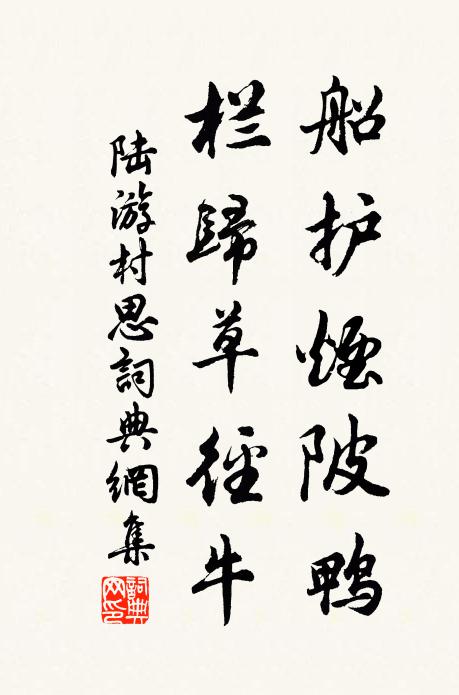 船护煙陂鸭
栏歸草徑牛
陆游村思詞典網集
詞典网印